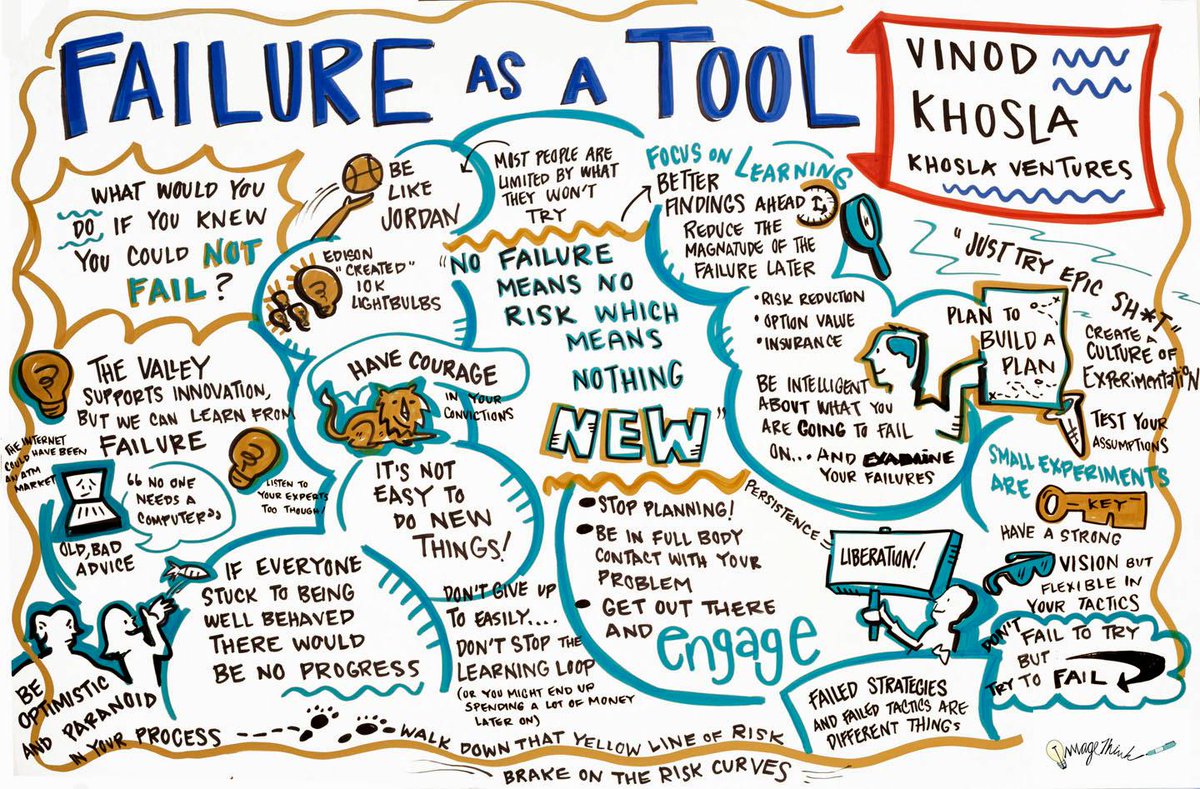 FAILURE AS A TOOL
VINOD
KHOSLA
KHOSLA VENTURES
WHAT WOULD YOU
DO IF YOU KNEW
YOU COULD NOT
FAIL?
BE
LIKE
JORDAN
MOST PEOPLE ARE
LIMITED BY WHAT
THEY WON'T
TRY
FOCUS ON LEARNING
BETTER
FINDINGS AHEAD
REDUCE THE
MAGNATUDE OF THE
FAILURE LATER
EDISON
"CREATED"
10K
LIGHTBULBS
"NO FAILURE
MEANS NO
RISK WHICH
MEANS
NOTHING
NEW"
• RISK REDUCTION
• OPTION VALUE
• INSURANCE
BE INTELLIGENT
ABOUT WHAT YOU
ARE GOING TO FAIL
ON... AND EXAMINE
YOUR FAILURES
"JUST TRY EPIC SH*T"
PLAN TO
BUILD A
PLAN
CREATE A
CULTURE OF
EXPERIMENTATION
TEST YOUR
ASSUMPTIONS
SMALL EXPERIMENTS
ARE
KEY
HAVE A STRONG
VISION BUT
FLEXIBLE IN
YOUR TACTICS
THE VALLEY
SUPPORTS INNOVATION,
BUT WE CAN LEARN FROM
FAILURE
HAVE COURAGE
IN YOUR
CONVICTIONS
THE INTERNET
COULD HAVE BEEN
AN ATM
MARKET
"NO ONE
NEEDS A
COMPUTER"
OLD, BAD
ADVICE
LISTEN TO
YOUR EXPERTS
TOO THOUGH!
IT'S NOT
EASY TO
DO NEW
THINGS!
• STOP PLANNING!
• BE IN FULL BODY
CONTACT WITH YOUR
PROBLEM
• GET OUT THERE
AND engage
PERSISTENCE =
LIBERATION!
IF EVERYONE
STUCK TO BEING
WELL BEHAVED
THERE WOULD
BE NO PROGRESS
DON'T GIVE UP
TO EASILY....
DON'T STOP THE
LEARNING LOOP
(OR YOU MIGHT END UP
SPENDING A LOT OF MONEY
LATER ON)
DON'T
FAIL TO TRY
BUT
TRY TO FAIL
FAILED STRATEGIES
AND FAILED TACTICS ARE
DIFFERENT THINGS
BE
OPTIMISTIC
AND PARANOID
IN YOUR PROCESS
WALK DOWN THAT YELLOW LINE OF RISK
BRAKE ON THE RISK CURVES
ImageThink